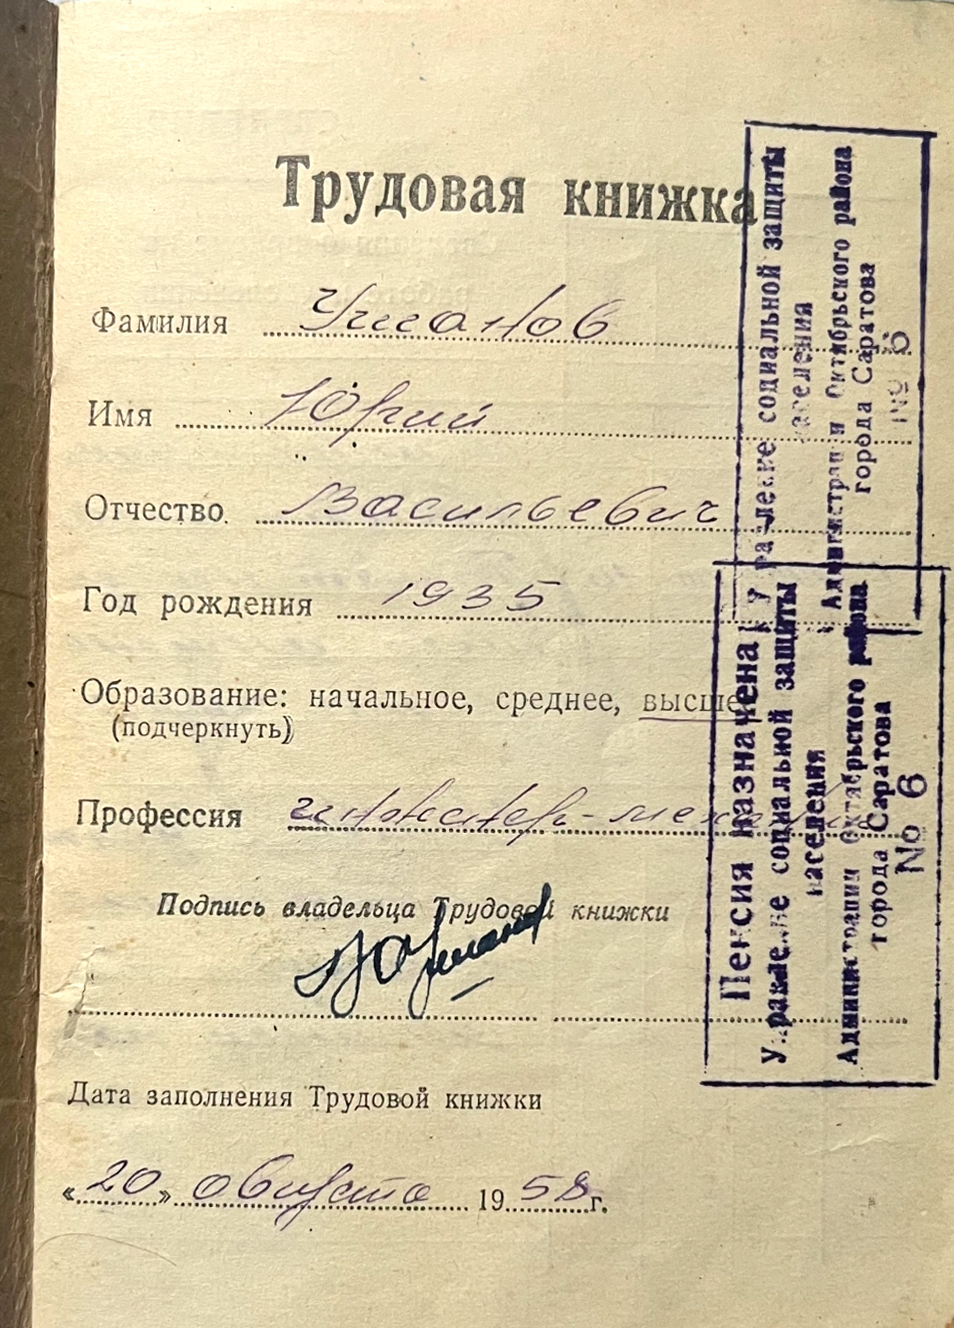 Трудовая книжка
Фамилия
Имя Юрий
Отчество Васильевич
Год рождения 1935
Образование: начальное, среднее, высшее
(подчеркнуть)
Профессия инженер-механик
Подпись владельца Трудовой книжки
Дата заполнения Трудовой книжки
«20» августа 1958г.
Управление социальной защиты
населения
Администрации Октябрьского района
города Саратова
№ 6
Пенсия назначена
Управление социальной защиты
населения
Администрации Октябрьского района
города Саратова
No 6